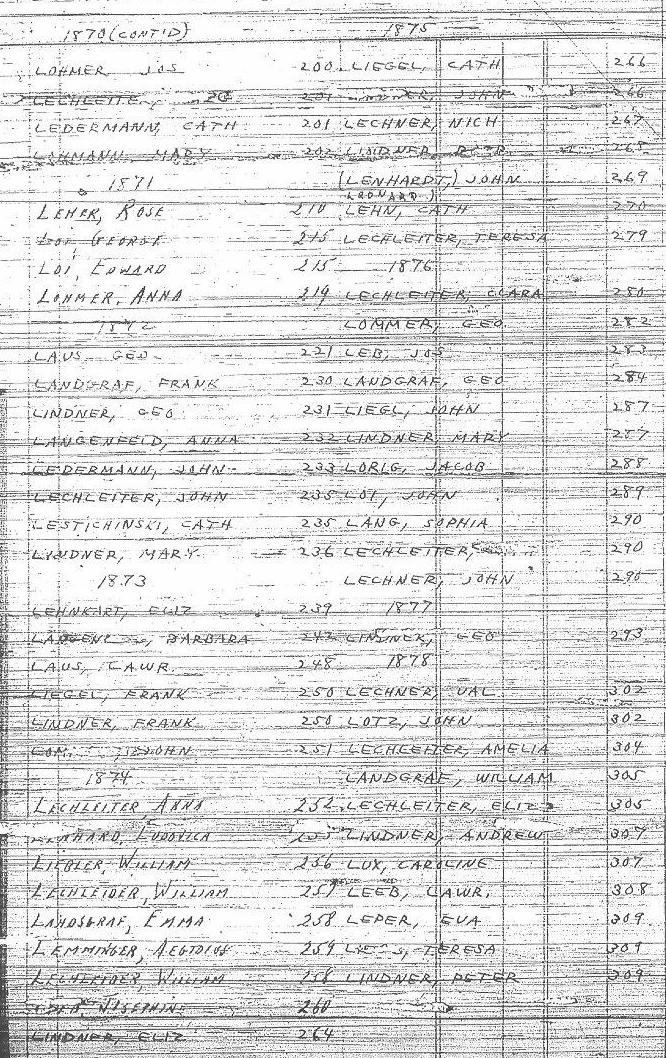 1870 (CONT'D)
LOHMER, JOS 200
LECHLEITE
LEDERMANN, CATH 201
LEHMANN, MARY 202
1871
LEHER, ROSE 210
LOI, GEORGE 215
LOI, EDWARD 215
LOHMER, ANNA 219
1872
LAUS, GEO. 221
LANDGRAF, FRANK 230
LINDNER, GEO 231
LANGENFELD, ANNA 232
LEDERMANN, JOHN 233
LECHLEITER, JOHN 235
LESTICHINSKI, CATH 235
LINDNER, MARY 236
1873
LEHNKART, ELIZ 239
BARBARA 242
LAUS, LAWR. 248
LIEGEL, FRANK 250
LINDNER, FRANK 250
JOHN 251
1874
LECHLEITER ANNA 252
LUDOVICA
LIEBLER, WILLIAM 256
LECHLEIDER, WILLIAM 257
LANDSGRAF, EMMA 258
LEMMINGER, AEGIDIUS 259
LECHLEIDER, WILLIAM 258
JOSEPHINE 260
LINDNER, ELIZ 264
1875
LIEGEL, CATH 266
JOHN 266
LECHNER, NICH 267
LINDNER, 268
(LENHARDT,) JOHN 269
LEONARD)
LEHN, CATH 270
LECHLEITER, TERESA 279
1876
LECHLEITER, CLARA 280
LOMMER, GEO. 282
LEB, JOS 283
LANDGRAF, GEO 284
LIEGL, JOHN 287
LINDNER, MARY 287
LORIG, JACOB 288
LOI, JOHN 289
LANG, SOPHIA 290
LECHLEITER, 290
LECHNER, JOHN 290
1877
LINDNER, GEO 293
1878
LECHNER, VAL 302
LOTZ, JOHN 302
LECHLEITER, AMELIA 304
LANDGRAF, WILLIAM 305
LECHLEITER, ELIZ 305
LINDNER, ANDREW 307
LUX, CAROLINE 307
LEEB, LAWR. 308
LEPER, EVA 309
TERESA 309
LINDNER, PETER 309